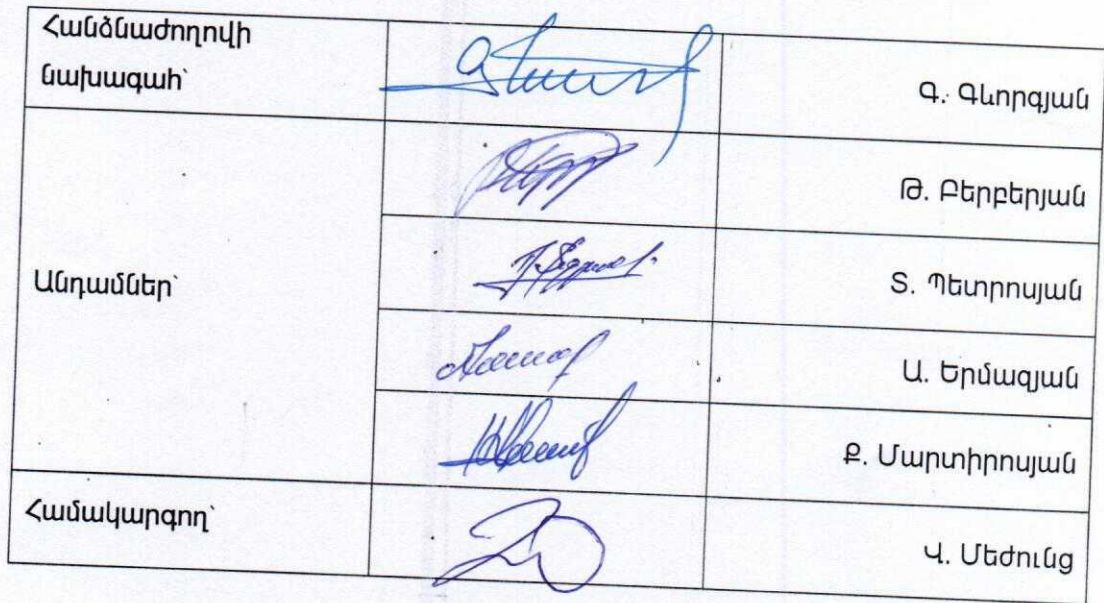 Հանձնաժողովի
նախագահ՝
Գ. Գևորգյան
Թ. Բերբերյան
Անդամներ՝
Տ. Պետրոսյան
Ա. Երմազյան
Ք. Մարտիրոսյան
Համակարգող՝
Վ. Մեժունց